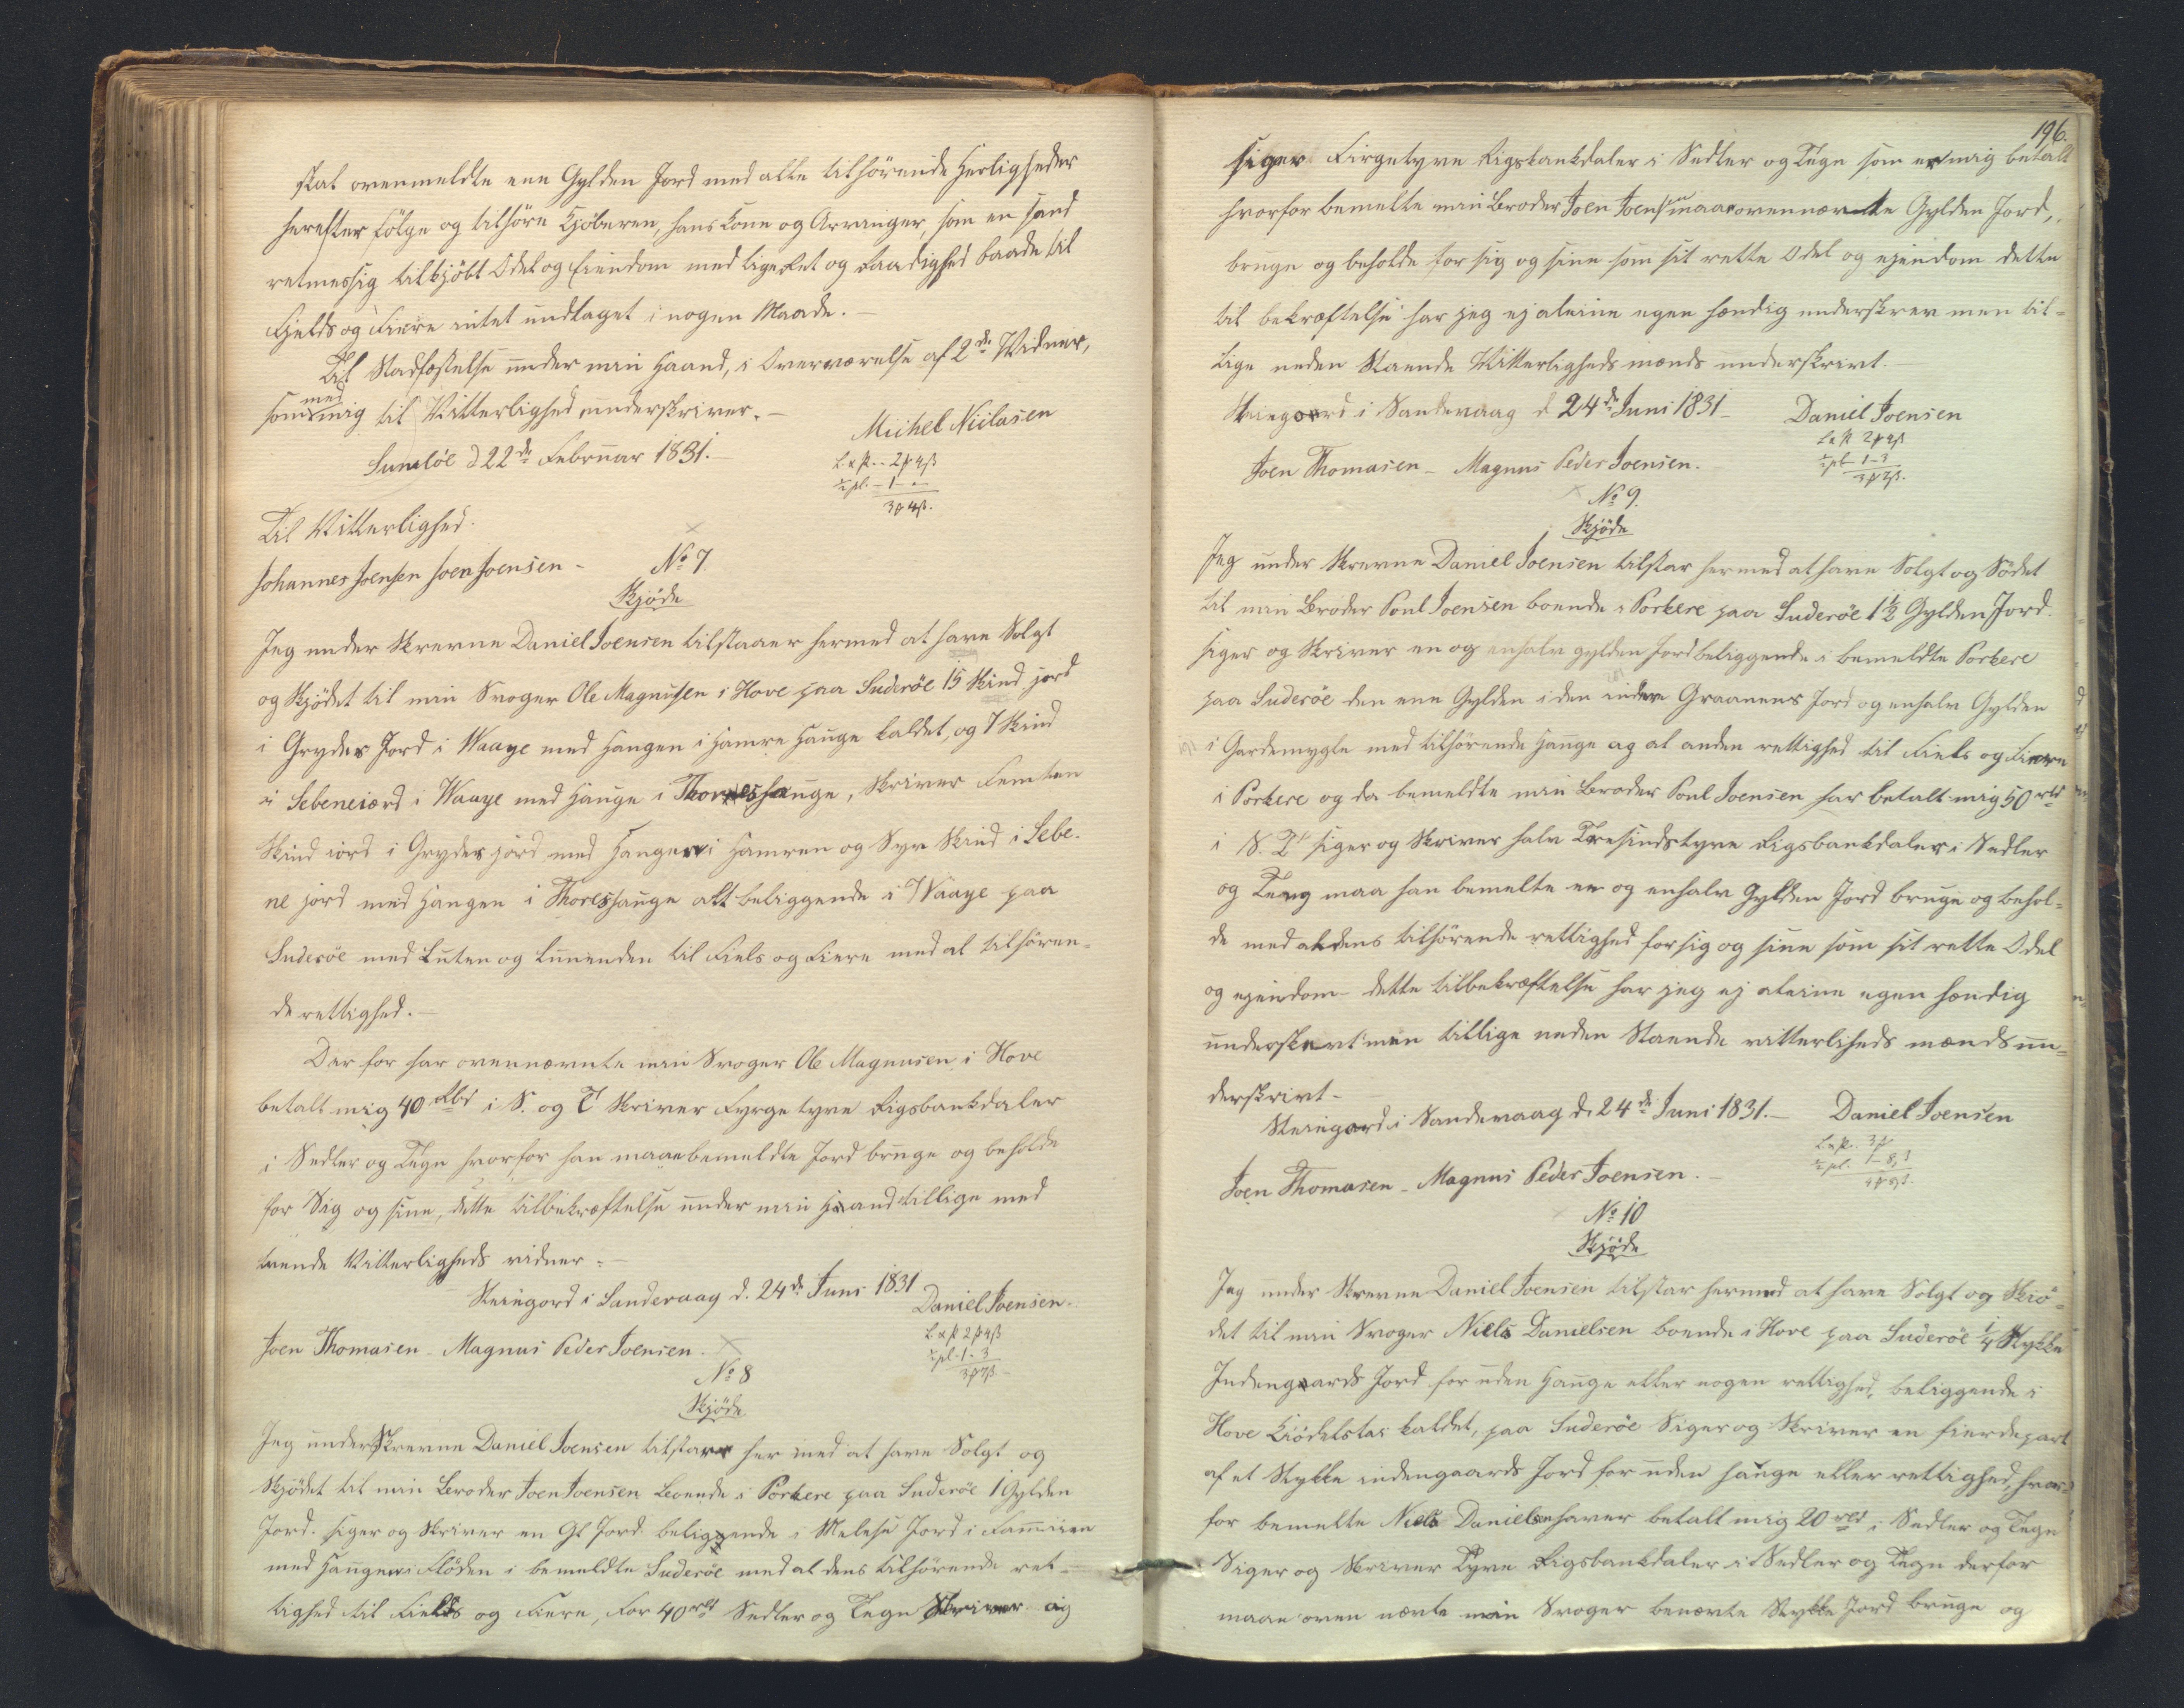 skal ovenmeldte een Gylden Jord med alle tilhörende Herligheder
herefter følge og tilhöre Kjöberen, hans Kone og Arvinger, som en sand
retmessig tilkjöbt Odel og Eiendom med lige Ret og Raadighed baade til
Fjelds og Fiære intet undtaget i nogen Maade. —
Til Stadfæstelse under min Haand, i Overværelse af 2de Vidner,
som med mig til Vitterlighed underskriver. —
Sumböe d 22de Februar 1831. —
Michel Niclasen
2 4
1
3 4
Til Vitterlighed.
Johannes Joensen Joen Joensen -
No 7
Skjöde
Jeg under Skrevne Daniel Joensen tilstaaer hermed at have Solgt
og Skjödet til min Svoger Ole Magnusen i Hove paa Suderöe 15 Skind jord
i Gryder Jord i Waaye med Haugen i Hamre Hauge kaldet, og 7 Skind
i Sebeneiord i Waaye med Hauge i Thoreshauge, Skriver Femten
Skind iord i Gryder jord med Haugen i Hamren og Syv Skind i Sebe-
ne jord med Haugen i Thoreshauge alt beliggende i Waaye paa
Suderöe med Luten og Lunenden til Fiels og Fiere med al tilhören-
de rettighed. —
Der for har ovennævnte min Svoger Ole Magnusen i Hove
betalt mig 40 Rbd i S. og T Skriver Fyrgetyve Rigsbankdaler
i Sedler og Tegn hvorfor han maae bemeldte Jord bruge og beholde
for Sig og sine, dette til bekræftelse under min Haand tillige med
tvende Vitterligheds vidner. —
Steingord i Sandevaag d. 24de Juni 1831
Daniel Joensen
Joen Thomasen - Magnus Peder Joensen.
2 4
1 - 3
3 7
No 8
Skjöde
Jeg underSkrevne Daniel Joensen tilstaar her med at have Solgt og
Skjödet til min Broder Joen Joensen Boende i Porkere paa Suderöe 1 Gylden
Jord. siger og Skriver en Gl Jord beliggende i Melese Jord i Fammien
med Haugen i Flöden i bemeldte Suderöe med al dens tilhörende ret-
tighed til Fields og Fiere, for 40 rbd Sedler og Tegn Skriver og
196.
siger Firgetyve Rigsbankdaler i Sedler og Tegn som er mig betalt
hvorfor bemelte min Broder Joen Joensen maae ovennævnte Gylden Jord,
bruge og beholde for sig og sine som sit rette Odel og ejendom dette
til bekræftelse har jeg ej aleine egen hændig underskrev men til-
lige neden Staende Vitterligheds mænds underskrivt.
Steingord i Sandevaag d 24de Juni 1831 -
Daniel Joensen
Joen Thomasen - Magnus Peder Joensen.
2 4
1 - 3
3 7
No 9.
Skjöde
Jeg under Skrevne Daniel Joensen tilstar hermed at have Solgt og Södet
til min Broder Poul Joensen boende i Porkere paa Suderöe 1½ Gylden Jord.
siger og Skriver en og enhalv gylden Jord beliggende i bemeldte Porkere
paa Suderöe den ene Gylden i den indere Graanens Jord og enhalv Gylden
i Gardemygle med tilhörende Hauge og al anden rettighed til Fiels og Fiere
i Porkere og da bemeldte min Broder Poul Joensen har betalt mig 50 rbd
i S. T. siger og Skriver halv Tresindstyve Rigsbankdaler i Sedler
og Teng maa han bemelte en og enhalv Gylden Jord bruge og behol-
de med al dens tilhörende rettighed for sig og sine som sit rette Odel
og ejendom - dette til bekræftelse har jeg ej aleine egen hændig
underskrevt men tillige neden Staende vitterliheds mænds un-
derskrivt -
Steingord i Sandevaag d. 24de Juni 1831. -
Daniel Joensen
Joen Thomasen - Magnus Peder Joensen. -
3
1 - 8
No 10
Skjöde
Jeg under Skrevne Daniel Joensen tilstar hermed at have Solgt og Skiö-
det til min Svoger Niels Danielsen boende i Hove paa Suderöe ¼ Stykke
Indengaards Jord for uden Hauge eller nogen rettighed, beliggende i
Hove Kiödelstas kaldet, paa Suderöe Siger og Skriver en fierdepart
af et Stykke indengaards Jord for uden hauge eller rettighed, hvor-
for bemelte Niels Danielsen haver betalt mig 20 rbd i Sedler og Tegn
Siger og Skriver Tyve Rigsbankdaler i Sedler og Tegn derfor
maae oven nævte min Svoger benævte Stykke Jord bruge og